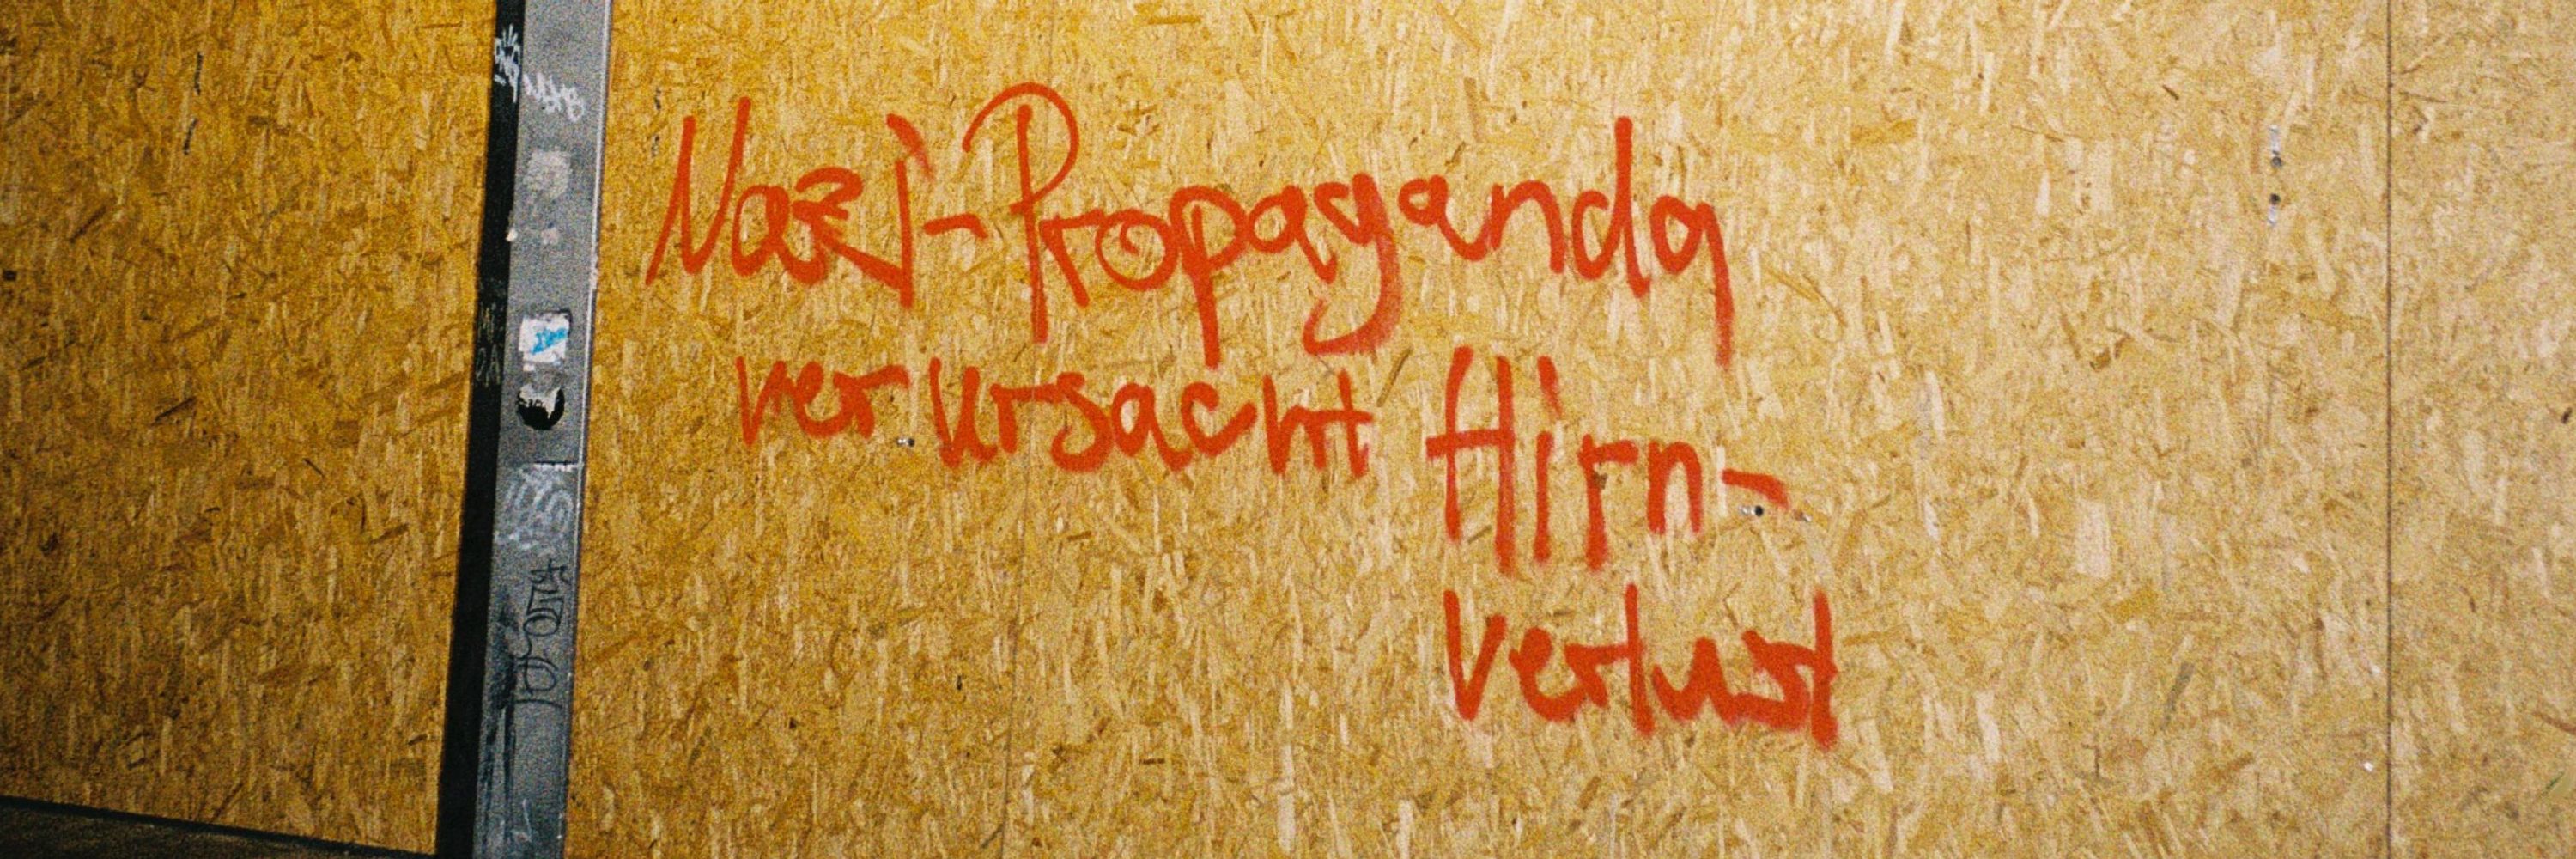 Nazi-Propaganda
verursacht Hirn-
verlust